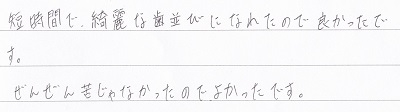 短時間で、綺麗な歯並びになれたので良かったで
す。
ぜんぜん苦じゃなかったのでよかったです。